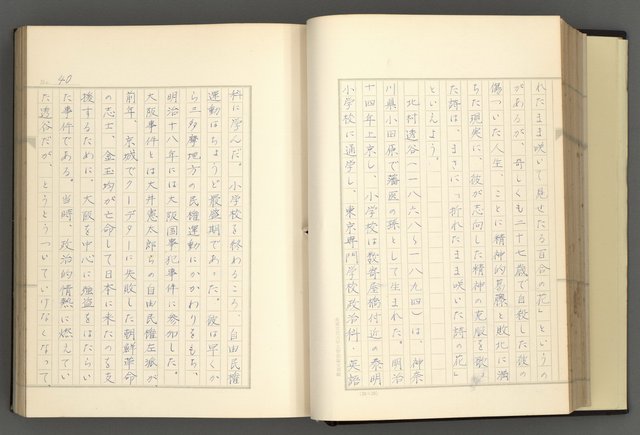 れたまま咲いて見せたる百合の花」というの
があるが、奇しくも二十七歳で自殺した彼の
傷ついた人生、ことに精神的葛藤と敗北に満
ちた現実に、彼が志向した精神の克服を歌っ
た詩は、まさに「折れたまま咲いた詩の花」
といえよう。
北村透谷(一八六八〜一八九四)は、神奈
川県小田原で藩医の孫として生まれた。明治
十四年上京し、小学校は数寄屋橋付近の泰明
小学校に通学し、東京専門学校政治科、英語
40
科に学んだ。小学校を終わるころ、自由民権
運動はちょうど最盛期であった。彼は早くか
ら三多摩地方の民権運動にかかわりをもち、
明治十八年には大阪国事犯事件に参加した。
大阪事件とは大井憲太郎らの自由民権左派が、
前年、京城でクーデターに失敗した朝鮮革命
の志士、金玉均が亡命して日本に来たのを支
援するために、大阪を中心に強盗をはたらい
た事件である。当時、政治的情熱に燃えてい
た透谷だが、とうとうついていけなくなって、